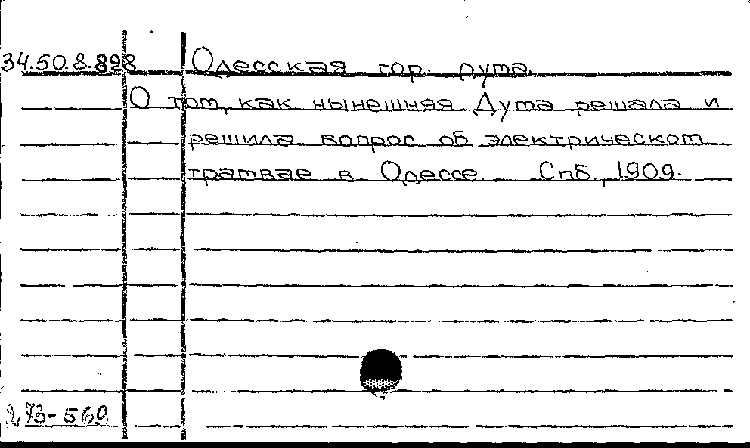 34.50.8.898 Одесская гор. дума.
О том, как нынешняя Дума решала и
решила вопрос об электрическом
трамвае в Одессе. Спб., 1909.
273-560